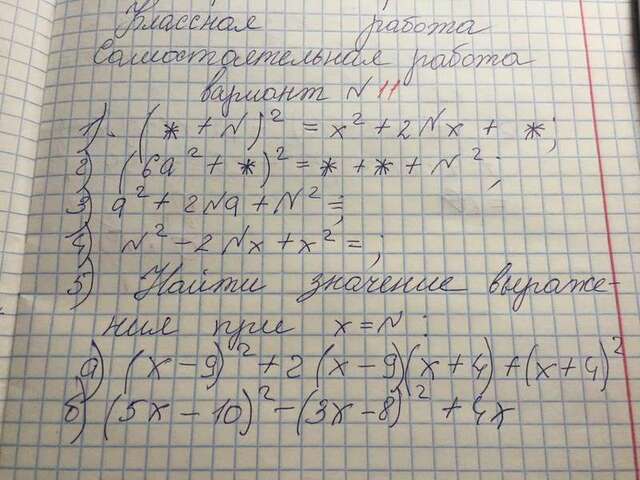 Классная работа
Самостоятельная работа
вариант N 11
1. (* + N)² = x² + 2Nx + *;
2) (6a² + *)² = * + * + N²;
3) 9² + 2N9 + N² =;
4) N² - 2Nx + x² =;
5) Найти значение выраже-
ния при x = N
а) (x - 9)² + 2(x - 9)(x + 4) + (x + 4)²
б) (5x - 10)² - (3x - 8)² + 4x